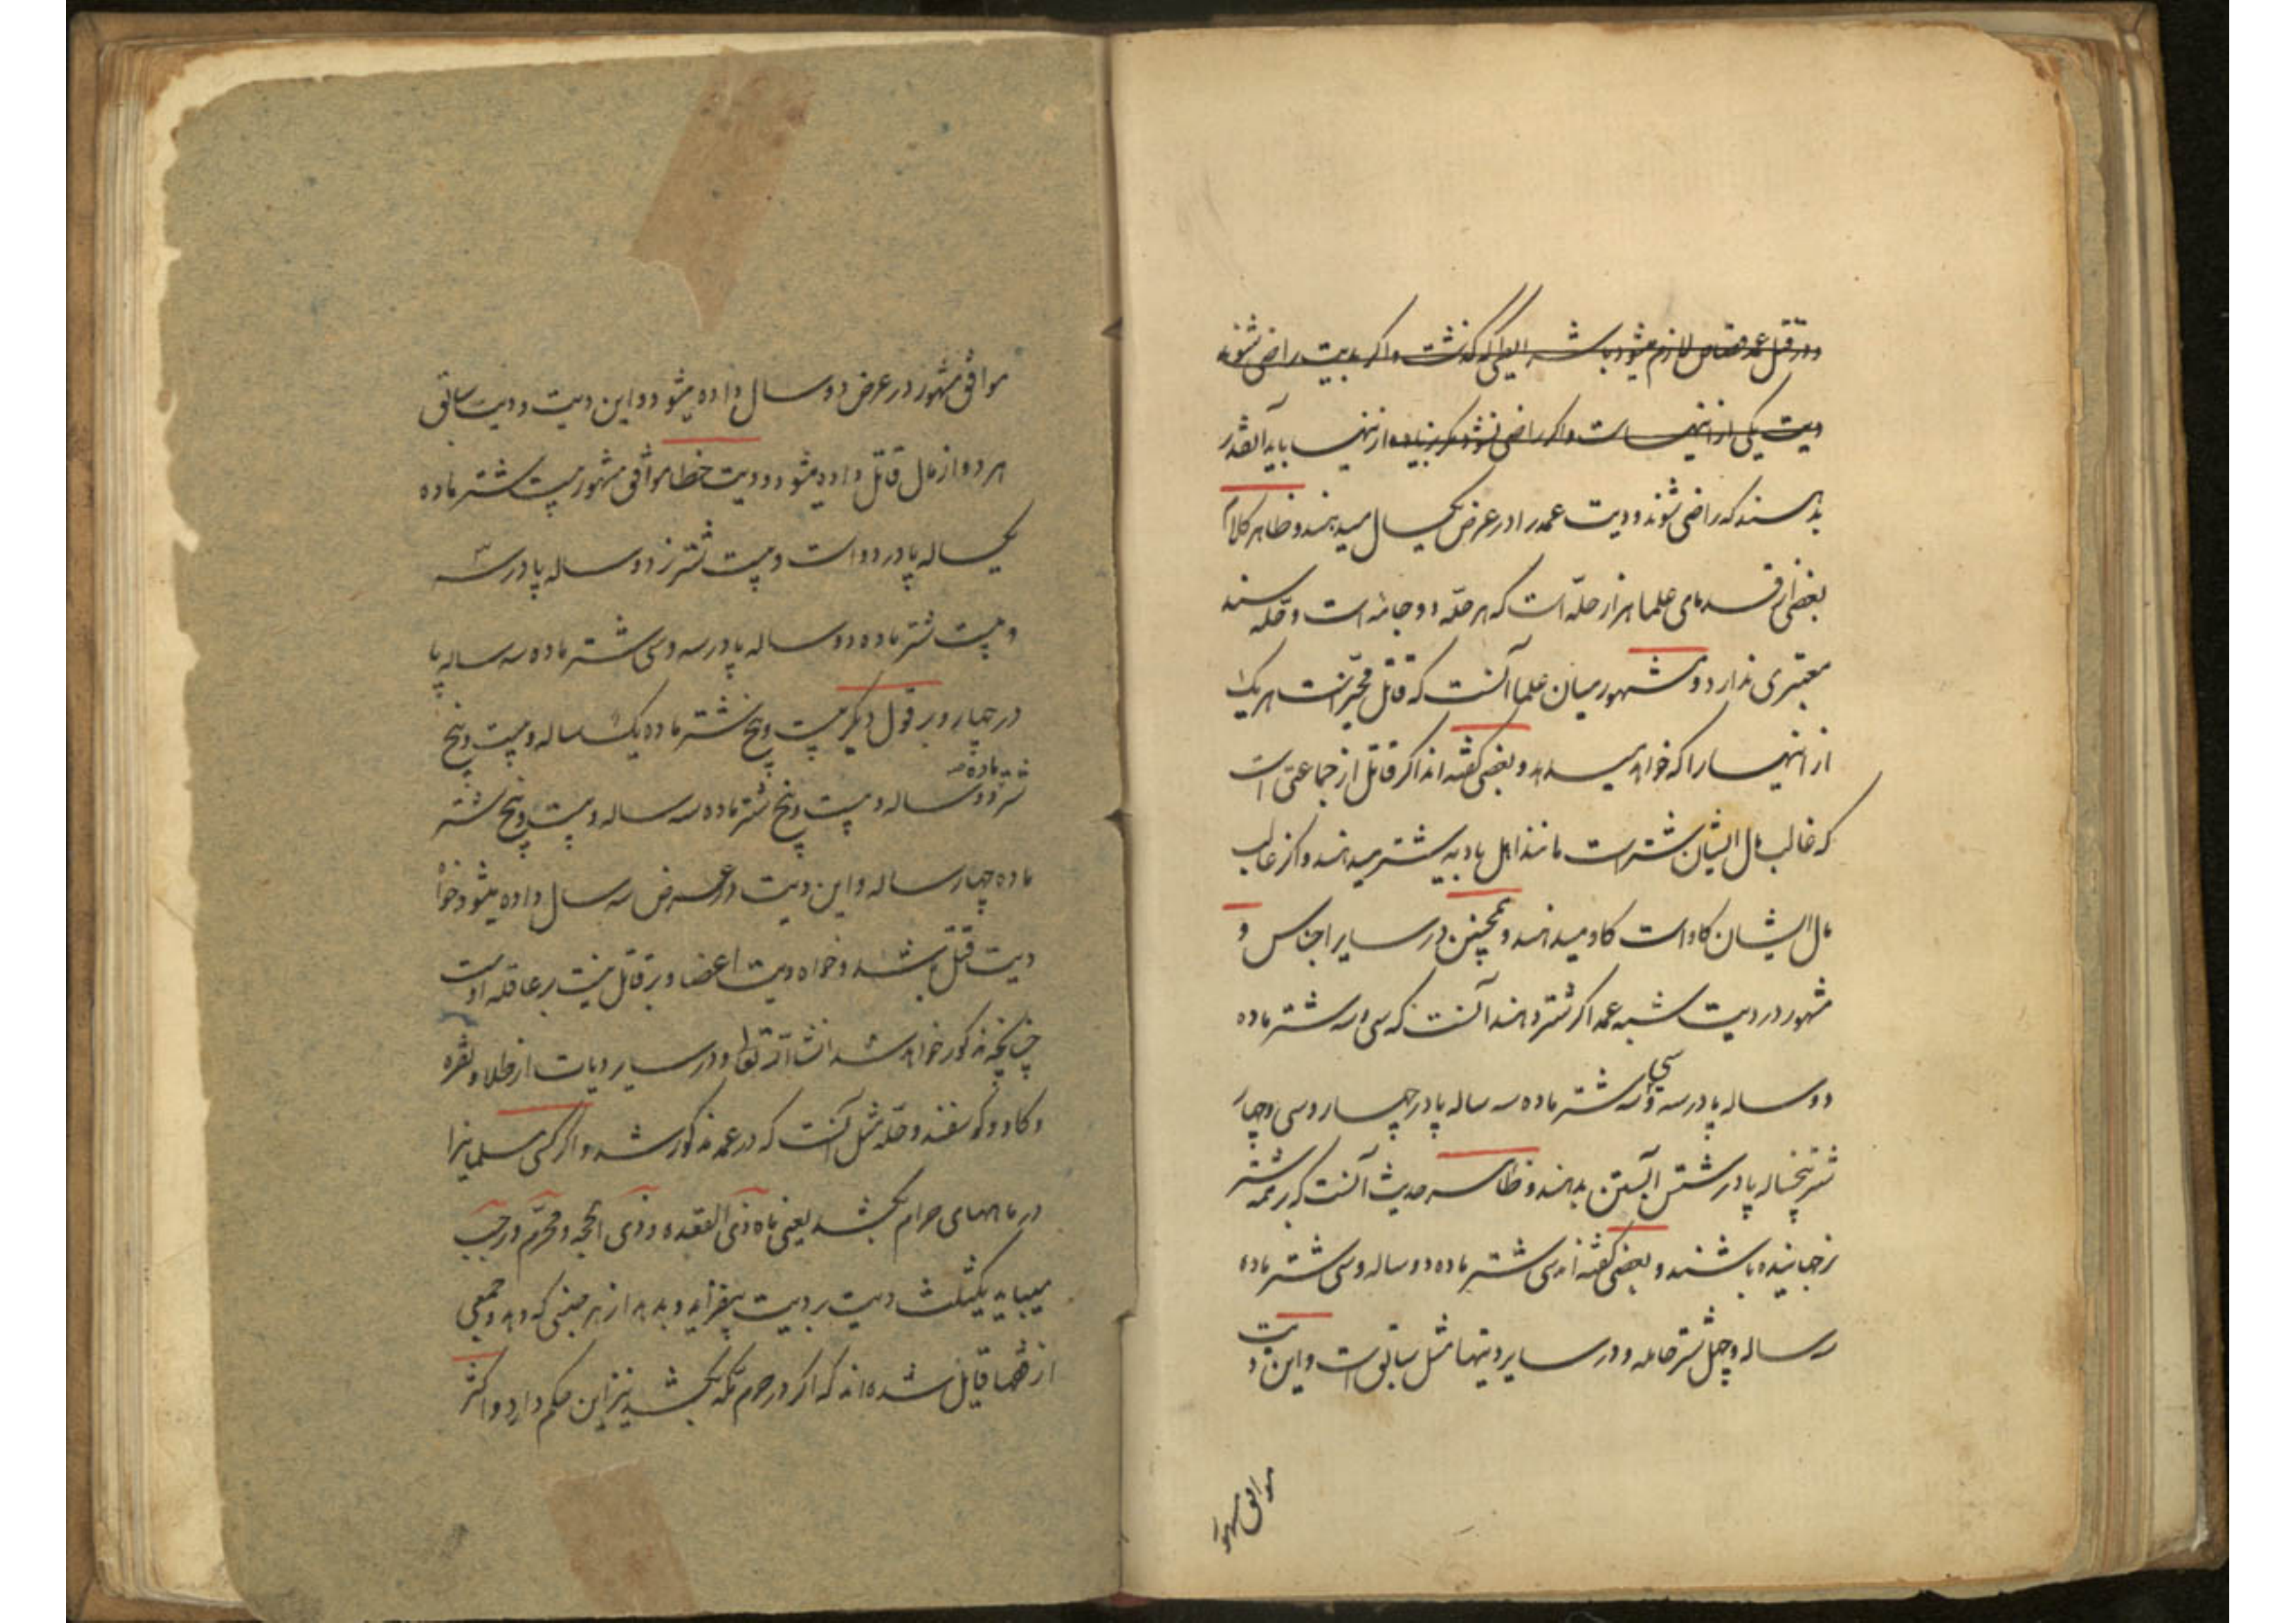 و در قتل عمد قصاص لازم میشود باشرایطی که گذشت و اگر بدیت راضی شوند
دیت یکی از اینهاست و اگر راضی نشود مگر بزیاده از اینها باید آنقدر
بدهند که راضی شوند و دیت عمد را در عرض یکسال میدهند و ظاهر کلام
بعضی از قدمای علما هزار حلّه است که هر حلّه دو جامه است و حلّه سند
معتبری ندارد و مشهور میان علما آنست که قاتل مخیّر است هر یک
از اینها را که خواهد میدهد و بعضی گفته‌اند اگر قاتل از جماعتی است
که غالب مال ایشان شتر است مانند اهل بادیه شتر میدهند و اگر غالب
مال ایشان گاو است گاو میدهند و همچنین در سایر اجناس و
مشهور در دیت شبه عمد اگر شتر دهند آنست که سی و سه شتر ماده
دو ساله پا در سه و سی و سه شتر ماده سه ساله پا در چهار و سی و چهار
شتر پنجساله پا در شش آبستن بدهند و ظاهر حدیث آنست که بر همه شتر
نر جهانیده باشند و بعضی گفته‌اند سی شتر ماده دو ساله و سی شتر ماده
سه ساله و چهل شتر حامله و در سایر دیتها مثل سابق است و این دیت
موافق مشهور
موافق مشهور در عرض دو سال داده میشود و این دیت و دیت سابق
هر دو از مال قاتل داده میشود و دیت خطا موافق مشهور بیست شتر ماده
یکساله پا در دو است و بیست شتر نر دو ساله پا در سه
و بیست شتر ماده دو ساله پا در سه و سی شتر ماده سه ساله پا
در چهار و بر قول دیگر بیست و پنج شتر ماده یک ساله و بیست و پنج
شتر ماده دو ساله و بیست و پنج شتر ماده سه ساله و بیست و پنج شتر
ماده چهار ساله و این دیت در عرض سه سال داده میشود خواه
دیت قتل باشد و خواه دیت اعضا و بر قاتل نیست بر عاقله اوست
چنانچه مذکور خواهد شد انشاء الله تعالی و در سایر دیات از طلا و نقره
و گاو و گوسفند و حلّه مثل آنست که در عمد مذکور شد و اگر کسی مسلمانیرا
در ماههای حرام بکشد یعنی ماه ذی القعده و ذی الحجه و محرّم و رجب
میباید یکثلث دیت بر دیت بیفزاید و بدهد از هر جنس که دهد و جمعی
از فقها قایل شده‌اند که اگر در حرم مکه بکشد نیز این حکم دارد و اکثر